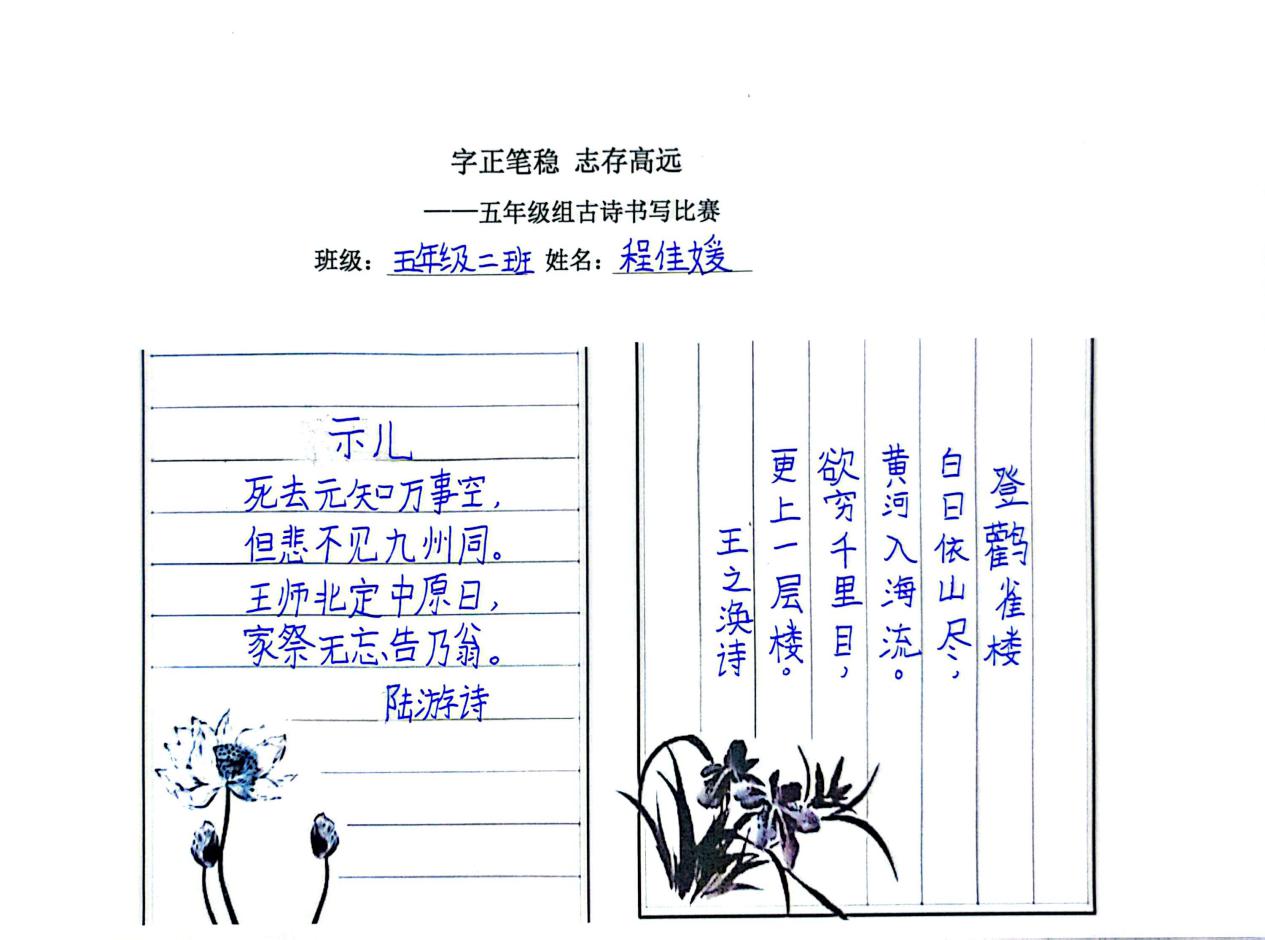 字正笔稳 志存高远
——五年级组古诗书写比赛
班级：五年级二班 姓名：程佳媛
示儿
死去元知万事空，
但悲不见九州同。
王师北定中原日，
家祭无忘告乃翁。
陆游诗
登鹳雀楼
白日依山尽，
黄河入海流。
欲穷千里目，
更上一层楼。
王之涣诗